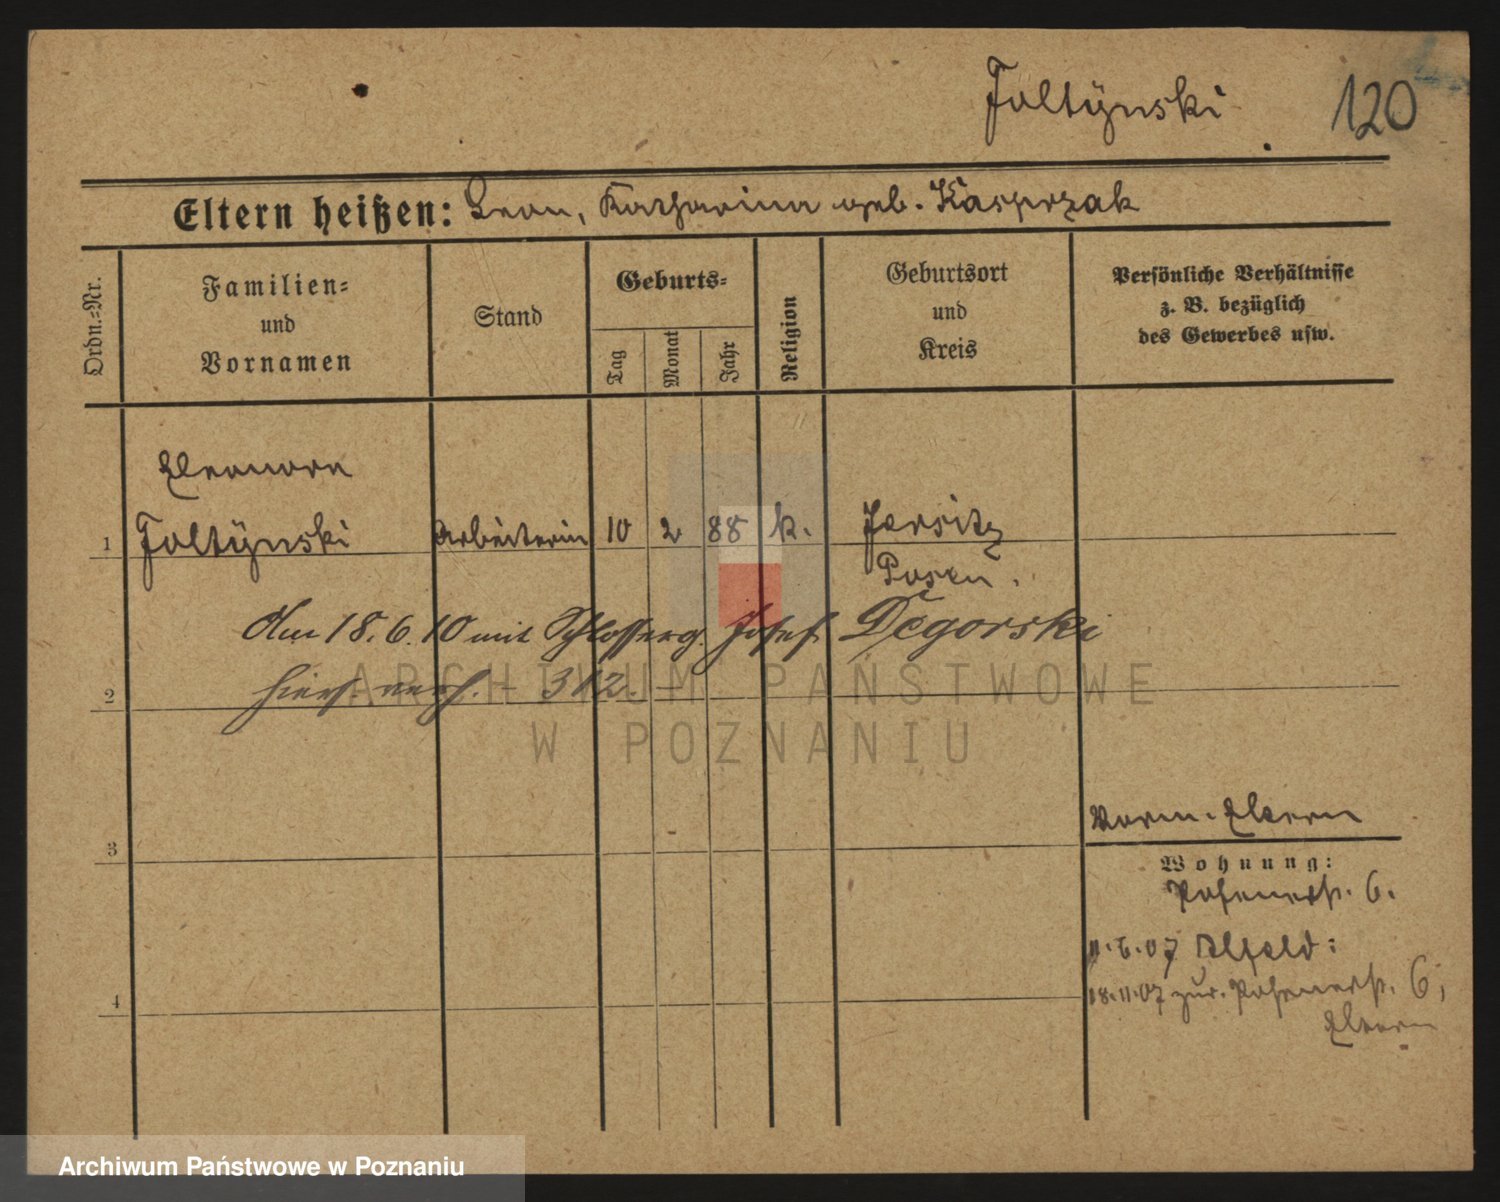 Foltÿnski
120
Eltern heißen: Leon, Katharina geb. Kasprzak
Ordn.-Nr.
Familien-
und
Vornamen
Stand
Geburts-
Tag
Monat
Jahr
Religion
Geburtsort
und
Kreis
Persönliche Verhältnisse
z. B. bezüglich
des Gewerbes usw.
Eleonora
1 Foltÿnski Arbeiterin 10 2 88 k. Jersitz
Posen.
Am 18.6.10 mit Schlosserg. Josef Degorski
2 hiers. verh. - 312. -
3
Vorm. Eltern
Wohnung:
Posenerstr. 6.
11.6.07 Alfeld:
18.11.07 zur. Posenerstr. 6,
Eltern
4
ARCHIWUM PAŃSTWOWE
W POZNANIU
Archiwum Państwowe w Poznaniu